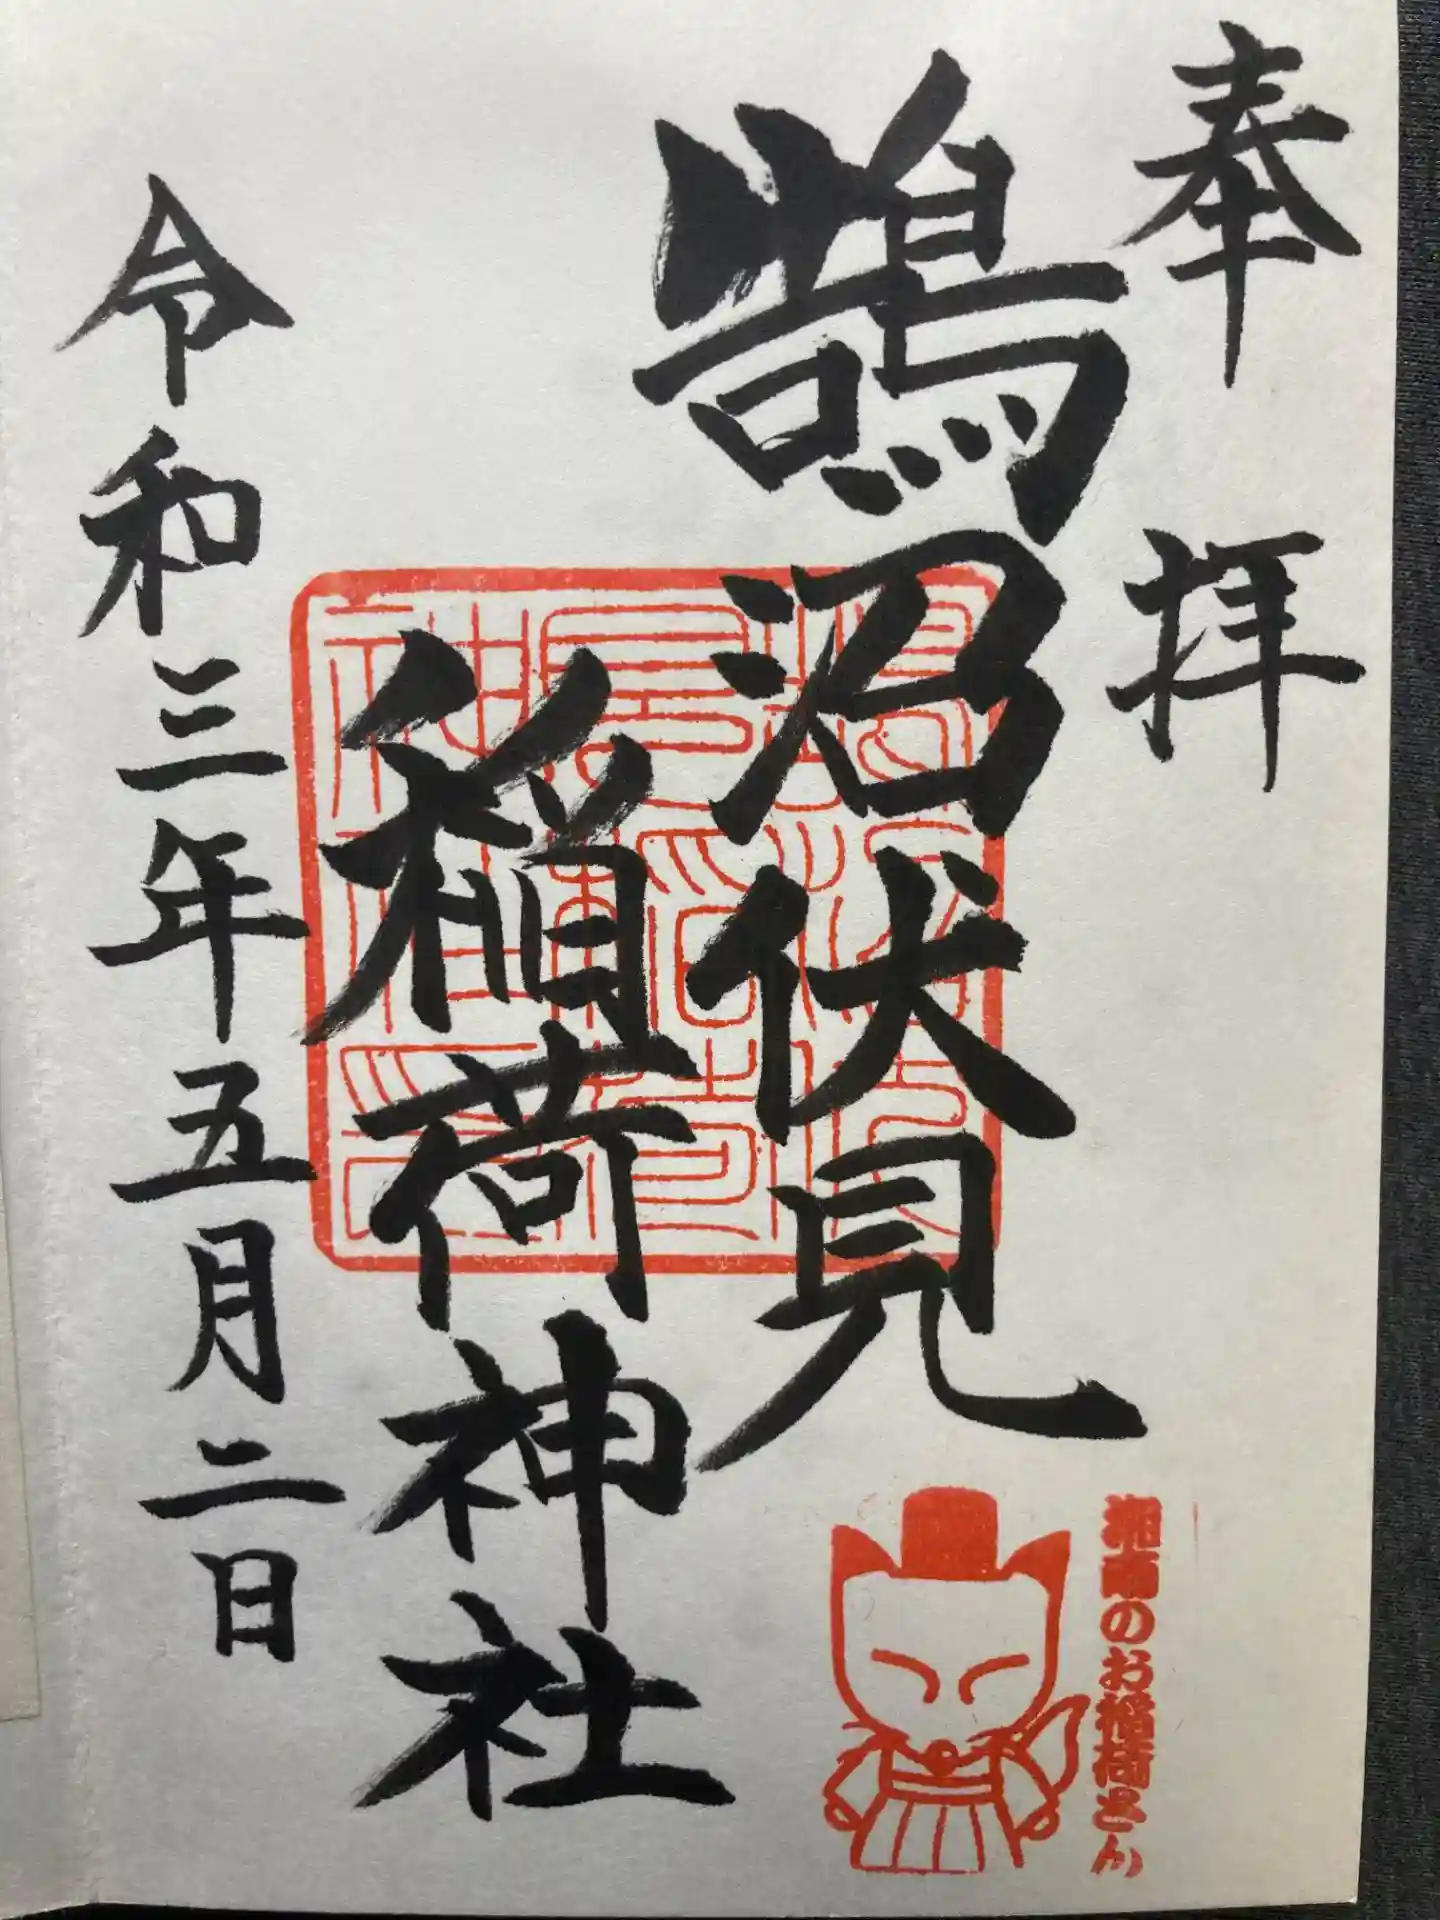 奉拝
鵠沼伏見
稲荷神社
令和三年五月二日
湘南のお稲荷さん